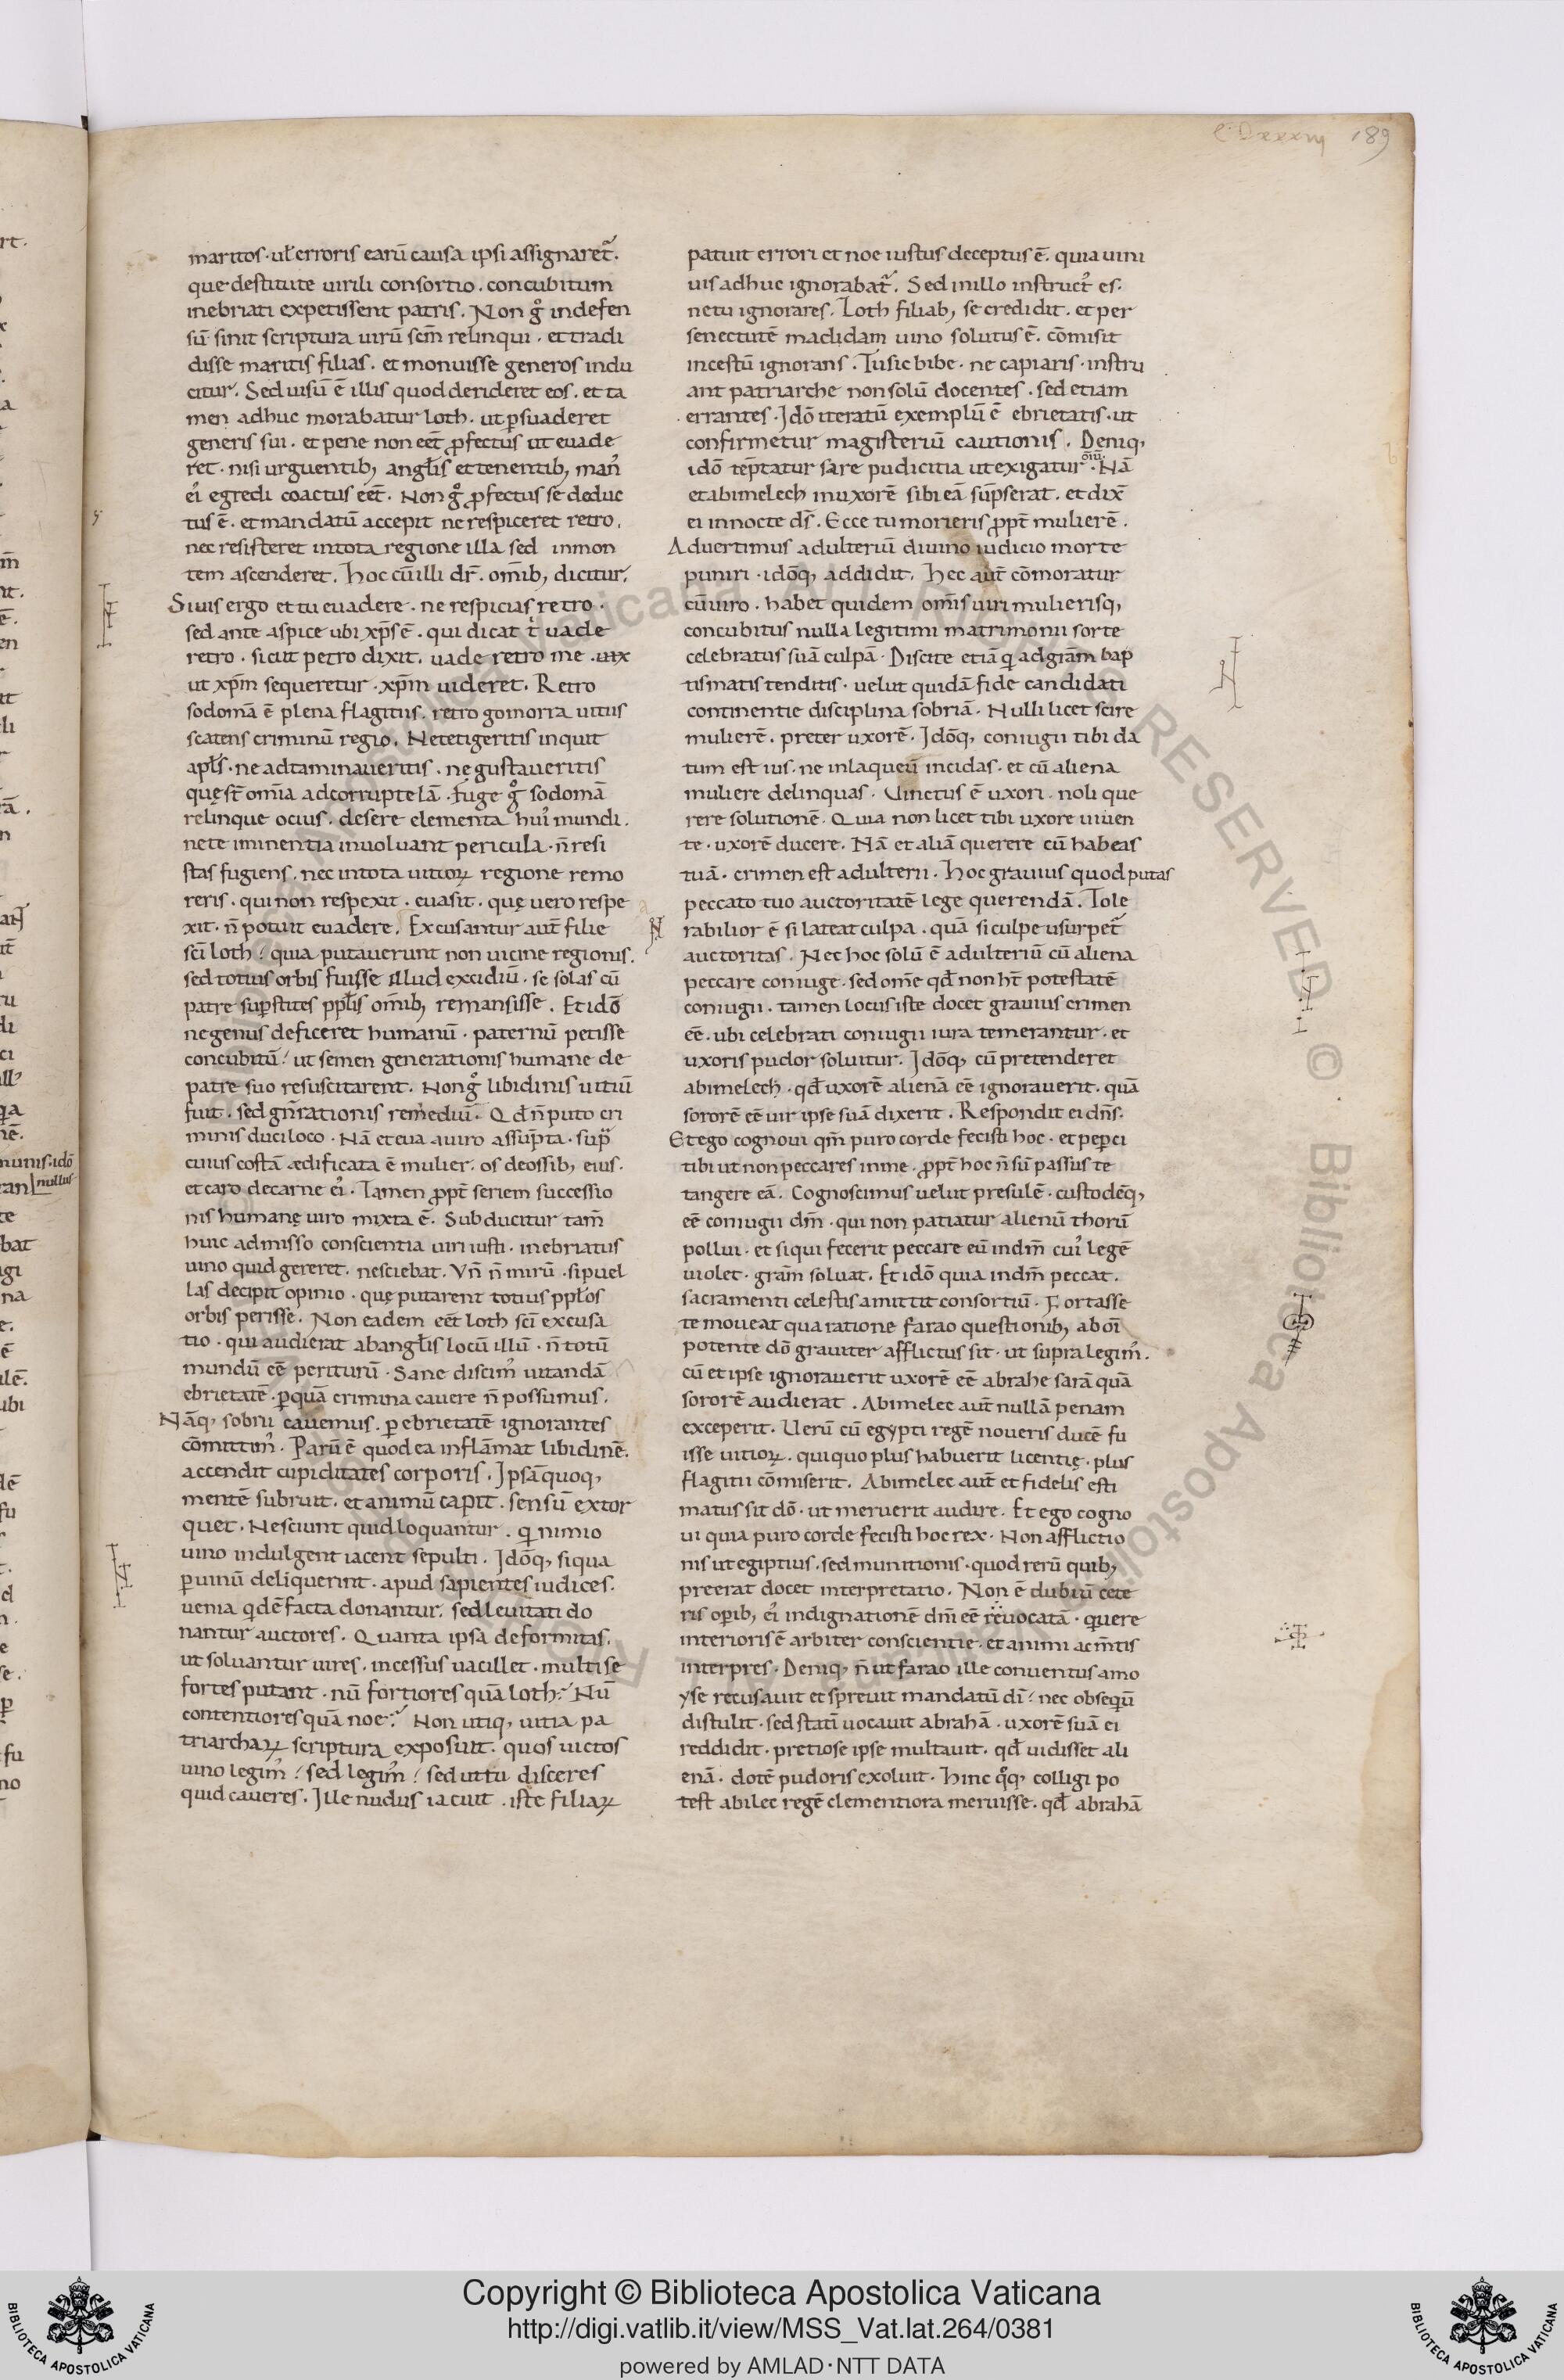 c Dxxxiij 189
maritos · ul̃ erroris earũ causa ipsi assignaret̃.
que destitute uirili consortio . concubitum
inebriati expetissent patris . Non gͦ indefen
sũ sinit scriptura uirũ scm̃ relinqui . et tradi
disse maritis filias . et monuisse generos indu
citur . Sed uisũ ẽ illis quod derideret eos . et ta
men adhuc morabatur loth . ut ꝑsuaderet
generis sui . et pene non eet̃ ꝓfectus ut euade
ret . nisi urguentib; angl̃is et tenentib; man᷒
ei᷒ egredi coactus eet̃ . Non gͦ ꝓfectus sed educ
tus ẽ . et mandatũ accepit ne respiceret retro .
nec resisteret in tota regione illa sed in mon
tem ascenderet . Hoc cũ illi dr̃ . om̃ib; dicitur .
Si uis ergo et tu euadere . ne respicias retro .
sed ante aspice ubi xp̃s ẽ . qui dicat t̾ uade
retro . sicut petro dixit . uade retro me . uix
ut xp̃m sequeretur . xp̃m uideret . Retro
sodomã ẽ plena flagitiis . retro gomorra uitiis
scatens criminũ regio . Ne tetigeritis inquit
apl̃s . ne adtaminaueritis . ne gustaueritis
quę st̃ om̃ia ad corruptelã . Fuge gͦ sodomã
relinque ocius . desere elementa hui᷒ mundi .
ne te iminentia inuoluant pericula . ñ resi
stas fugiens . nec in tota uitioꝝ regione remo
reris . qui non respexit . euasit . quę uero respe
xit . ñ potuit euadere . Excusantur aut̃ filie
sci̅ loth ? quia putauerunt non uicine regionis .
sed totius orbis fuisse illud excidiũ . se solas cũ
patre suꝑstites ppl̃is om̃ib; remansisse . Et idõ
ne genus deficeret humanũ . paternũ petisse
concubitũ ? ut semen generationis humane de
patre suo resuscitarent . Non gͦ libidinis uitiũ
fuit . sed gñrationis remediũ . Qd̃ ñ puto cri
minis duci loco . Nã et eua a uiro assũpta . sup̃
cuius costã ædificata ẽ mulier . os de ossib; eius .
et caro de carne ei᷒ . Tamen ꝓpt̃ seriem successio
nis humanę uiro mixta ẽ . Subducitur tam̃
huic admisso conscientia uiri iusti . inebriatus
uino quid gereret . nesciebat . Vñ ñ mirũ . si puel
las decipit opinio . quę putarent totius ppl̃os
orbis perisse . Non eadem eet̃ loth sci̅ excusa
tio . qui audierat ab angl̃is locũ illũ . ñ totũ
mundũ eẽ periturũ . Sane discim᷒ uitandã
ebrietatẽ . ꝑ quã crimina cauere ñ possumus .
Nãq; sobrii cauemus . ꝑ ebrietatẽ ignorantes
cõmittim᷒ . Parũ ẽ quod ea inflãmat libidinẽ .
accendit cupiditates corporis . Ipsã quoq;
mentẽ subruit . et animũ capit . sensũ extor
quet . Nesciunt quid loquantur . qi nimio
uino indulgent iacent sepulti . Idõq; si qua
ꝑ uinũ deliquerint . apud sapientes iudices .
uenia qdẽ facta donantur . sed leuitati do
nantur auctores . Quanta ipsa deformitas .
ut soluantur uires . incessus uacillet . multi se
fortes putant . nũ fortiores quã loth ? Nũ
contentiores quã noe ? Non utiq; uitia pa
triarchaꝝ scriptura exposuit . quos uictos
uino legim᷒ ? sed legim᷒ ? sed ut tu disceres
quid caueres . Ille nudus iacuit . iste filiaꝝ
patuit errori et noe iustus deceptus ẽ . quia uini
uis adhuc ignorabat̃ . Sed in illo instruct᷒ es .
ne tu ignorares . Loth filiab; se credidit . et per
senectutẽ madidam uino solutus ẽ . cõmisit
incestũ ignorans . Tu sic bibe . ne capiaris . instru
ant patriarche non solũ docentes . sed etiam
errantes . Idõ iteratũ exemplũ ẽ ebrietatis . ut
confirmetur magisteriũ cautionis . Deniq;
idõ tẽptatur sare pudicitia ut exigatur oĩũ . Nã
et abimelech in uxorẽ sibi eã sũpserat . et dix̃
ei in nocte ds̃ . Ecce tu morieris ꝓpt̃ mulierẽ .
Aduertimus adulteriũ diuino iudicio morte
puniri . idõq; addidit . Hec aut̃ cõmoratur
cũ uiro . habet quidem om̃is uiri mulierisq;
concubitus nulla legitimi matrimonii sorte
celebratus suã culpã . Discite etiã qi ad grãm bap
tismatis tenditis . uelut quidã fide candidati
continentie disciplina sobriã . Nulli licet scire
mulierẽ . preter uxorẽ . Idõq; coniugii tibi da
tum est ius . ne in laqueũ incidas . et cũ aliena
muliere delinquas . Uinctus ẽ uxori . noli que
rere solutionẽ . Quia non licet tibi uxore uiuen
te . uxorẽ ducere . Nã et aliã querere cũ habeas
tuã . crimen est adulterii . Hoc grauius quod putas
peccato tuo auctoritatẽ lege querendã . Tole
rabilior ẽ si lateat culpa . quã si culpe usurpet̃
auctoritas . Nec hoc solũ ẽ adulteriũ cũ aliena
peccare coniuge . sed om̃e qd̃ non ht̃ potestatẽ
coniugii . tamen locus iste docet grauius crimen
eẽ . ubi celebrati coniugii iura temerantur . et
uxoris pudor soluitur . Idõq; cũ pretenderet
abimelech . qd̃ uxorẽ alienã eẽ ignorauerit . quã
sororẽ eẽ uir ipse suã dixerit . Respondit ei dñs .
Et ego cognoui qm̃ puro corde fecisti hoc . et peꝑci
tibi ut non peccares in me . ꝓpt̃ hoc ñ sũ passus te
tangere eã . Cognoscimus uelut presulẽ . custodẽq;
eẽ coniugii dm̃ . qui non patiatur alienũ thorũ
pollui . et si qui fecerit peccare eũ in dm̃ cui᷒ legẽ
uiolet . grãm soluat . Et idõ quia in dm̃ peccat .
sacramenti celestis amittit consortiũ . Fortasse
te moueat qua ratione farao questionib; ab oĩ
potente dõ grauiter afflictus sit . ut supra legim᷒ .
cũ et ipse ignorauerit uxorẽ eẽ abrahe sarã quã
sororẽ audierat . Abimelec aut̃ nullã penam
exceperit . Uerũ cũ egypti regẽ noueris ducẽ fu
isse uitioꝝ . qui quo plus habuerit licentię . plus
flagitii cõmiserit . Abimelec aut̃ et fidelis esti
matus sit dõ . ut meruerit audire . Et ego cogno
ui quia puro corde fecisti hoc rex . Non afflictio
nis ut egiptius . sed munitionis . quod rerũ quib;
preerat docet interpretatio . Non ẽ dubiũ cete
ris oꝑib; ei᷒ indignationẽ dm̃ eẽ reuocatã . quere
interioris ẽ arbiter conscientie . et animi ac m̃tis
interpres . Deniq; ñ ut farao ille conuentus a mo
yse recusauit et spreuit mandatũ di̅ ? nec obsequiũ
distulit . sed statĩ uocauit abrahã . uxorẽ suã ei
reddidit . pretiose ipse multauit . qd̃ uidisset ali
enã . dotẽ pudoris exoluit . Hinc qͦq; colligi po
test abilec regẽ clementiora meruisse . qd̃ abrahã
Copyright © Biblioteca Apostolica Vaticana
http://digi.vatlib.it/view/MSS_Vat.lat.264/0381
powered by AMLAD·NTT DATA
BIBLIOTECA APOSTOLICA VATICANA
BIBLIOTECA APOSTOLICA VATICANA